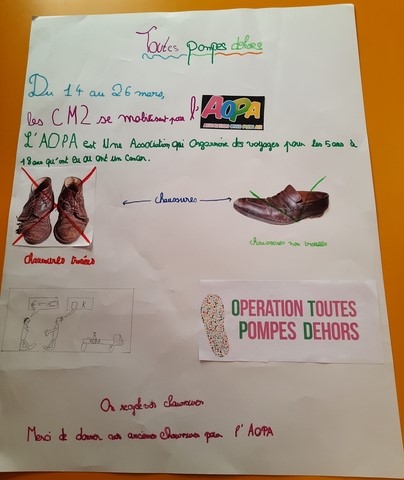 Toutes pompes dehors
Du 14 au 26 mars,
les CM2 se mobilisent pour l'AOPA
L'AOPA est une Association qui organise des voyages pour les 5 ans à
18 ans qu'ont eu ou ont un cancer.
chaussures
chaussures trouées
chaussures non trouées
OK
OPERATION TOUTES
POMPES DEHORS
On recycle vos chaussures
Merci de donner vos anciennes chaussures pour l'AOPA